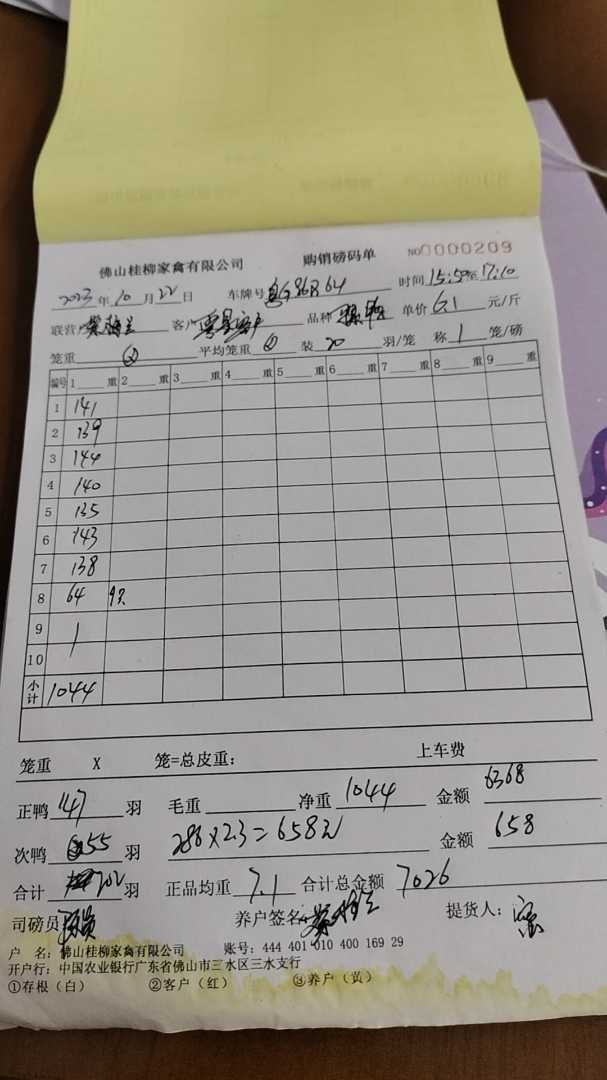 佛山桂柳家禽有限公司 购销磅码单 NO 0000209
2023年10月22日 车牌号 粤G86R64 时间 15:50至17:10
联营户 客户 零星客户 品种 单价 6.1 元/斤
笼重 平均笼重 装 20 羽/笼 称 1 笼/磅
编号 1 重 2 重 3 重 4 重 5 重 6 重 7 重 8 重 9 重
1 141
2 139
3 144
4 140
5 135
6 143
7 138
8 64 9只
9
10
小计 1044
笼重 X 笼=总皮重: 上车费
正鸭 147 羽 毛重 净重 1044 金额 6368
次鸭 55 羽 286×2.3=658元 金额 658
合计 202 羽 正品均重 7.1 合计总金额 7026
司磅员 养户签名: 提货人:
户 名: 佛山桂柳家禽有限公司 账号: 444 401 010 400 169 29
开户行: 中国农业银行广东省佛山市三水区三水支行
①存根(白) ②客户(红) ③养户(黄)